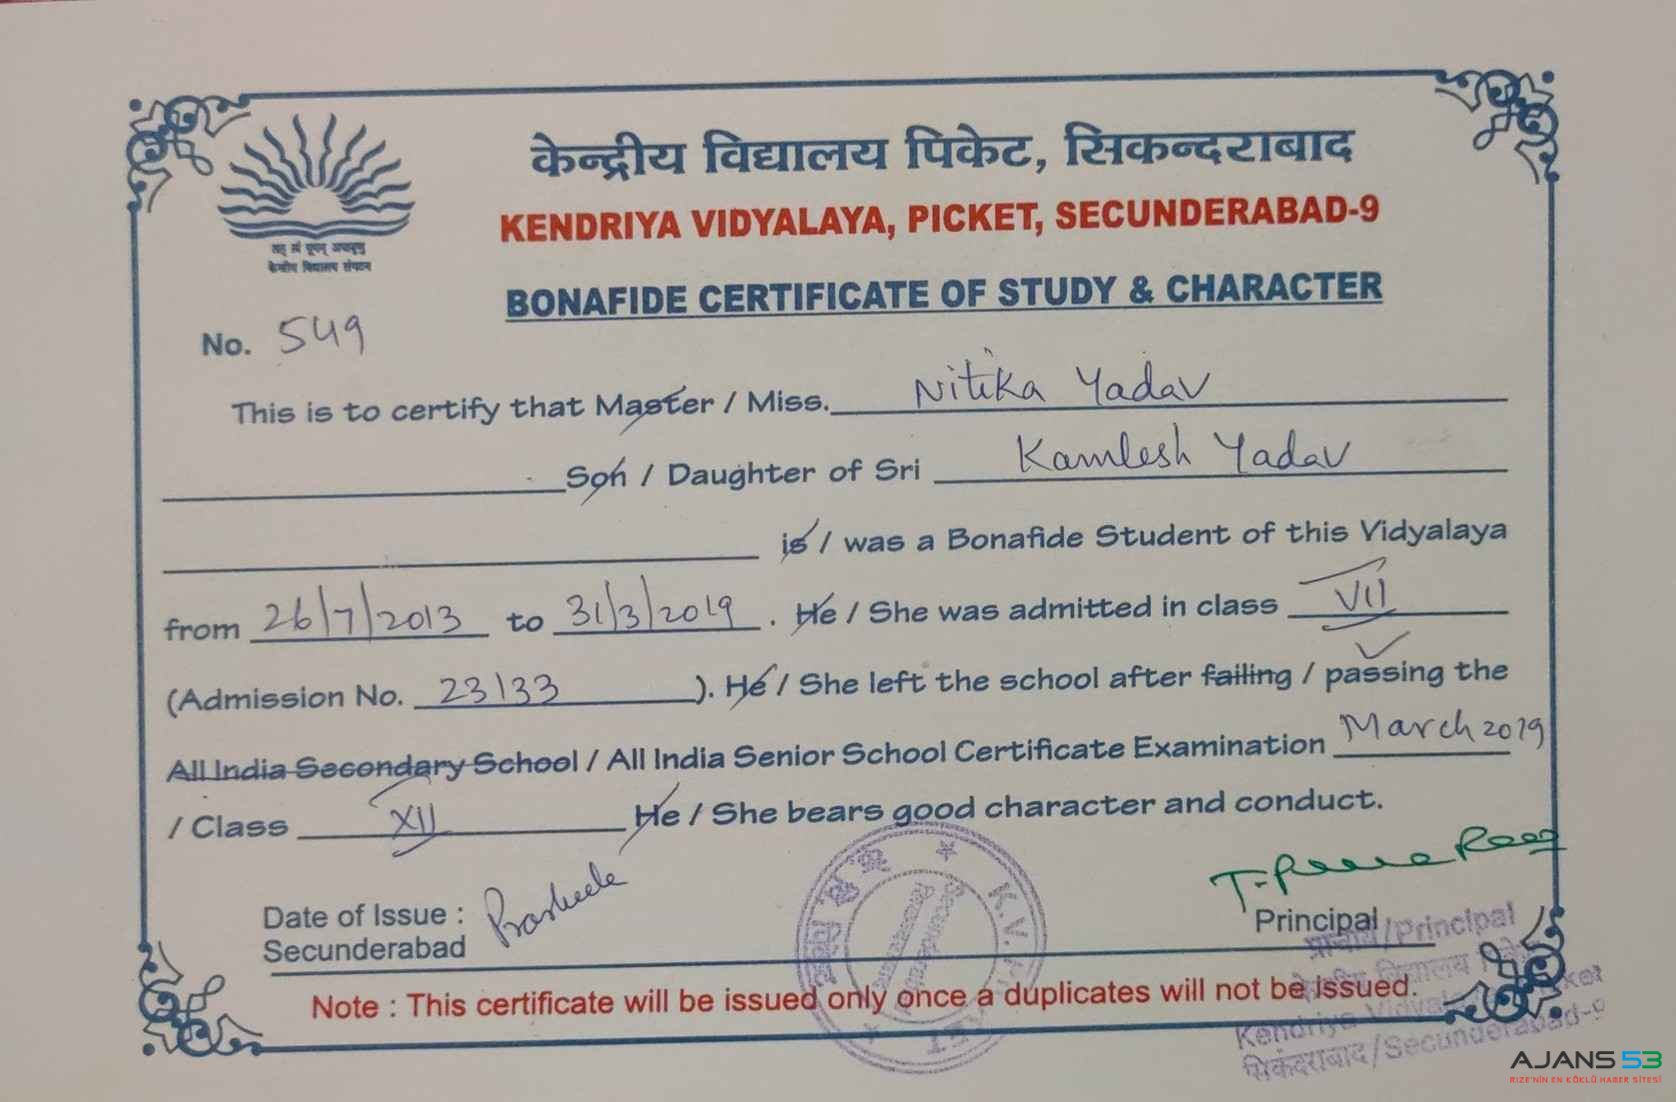 केन्द्रीय विद्यालय पिकेट, सिकन्दराबाद
KENDRIYA VIDYALAYA, PICKET, SECUNDERABAD-9
केन्द्रीय विद्यालय संगठन
BONAFIDE CERTIFICATE OF STUDY & CHARACTER
No. 549
This is to certify that Master / Miss. Nitika Yadav
Son / Daughter of Sri Kamlesh Yadav
is / was a Bonafide Student of this Vidyalaya
from 26/7/2013 to 31/3/2019 . He / She was admitted in class VII
(Admission No. 23133 ). He / She left the school after failing / passing the
All India Secondary School / All India Senior School Certificate Examination March 2019
/ Class XII He / She bears good character and conduct.
Date of Issue :
Secunderabad
Principal
प्राचार्य/Principal
केन्द्रीय विद्यालय
Kendriya Vidyalaya Picket
सिकंदराबाद/Secunderabad-9
K.V. PICKET
Note : This certificate will be issued only once a duplicates will not be issued.
AJANS 53
RİZE'NİN EN KÖKLÜ HABER SİTESİ